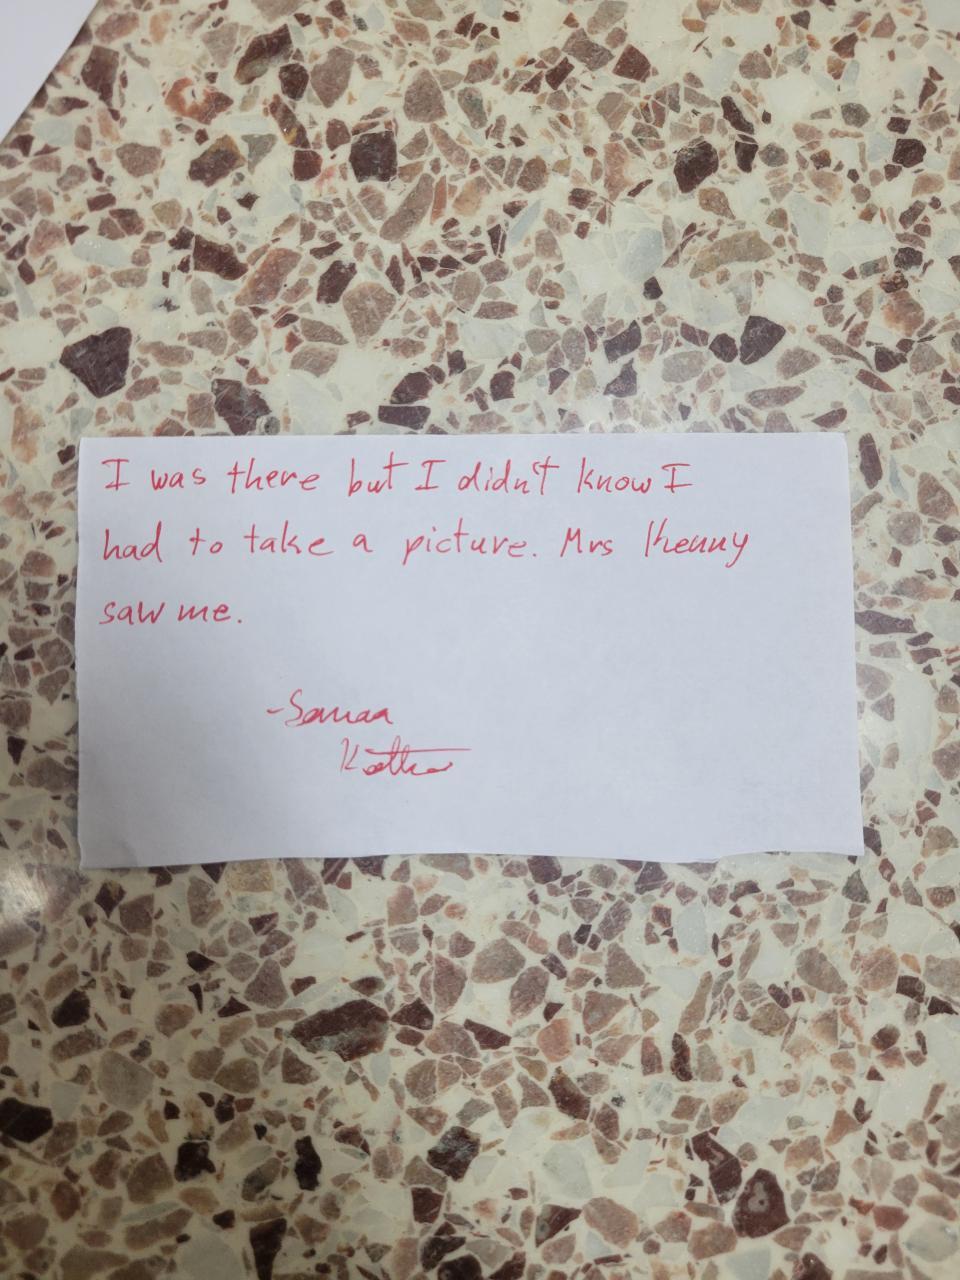 I was there but I didn't know I
had to take a picture. Mrs Kenny
saw me.
-Sanaa